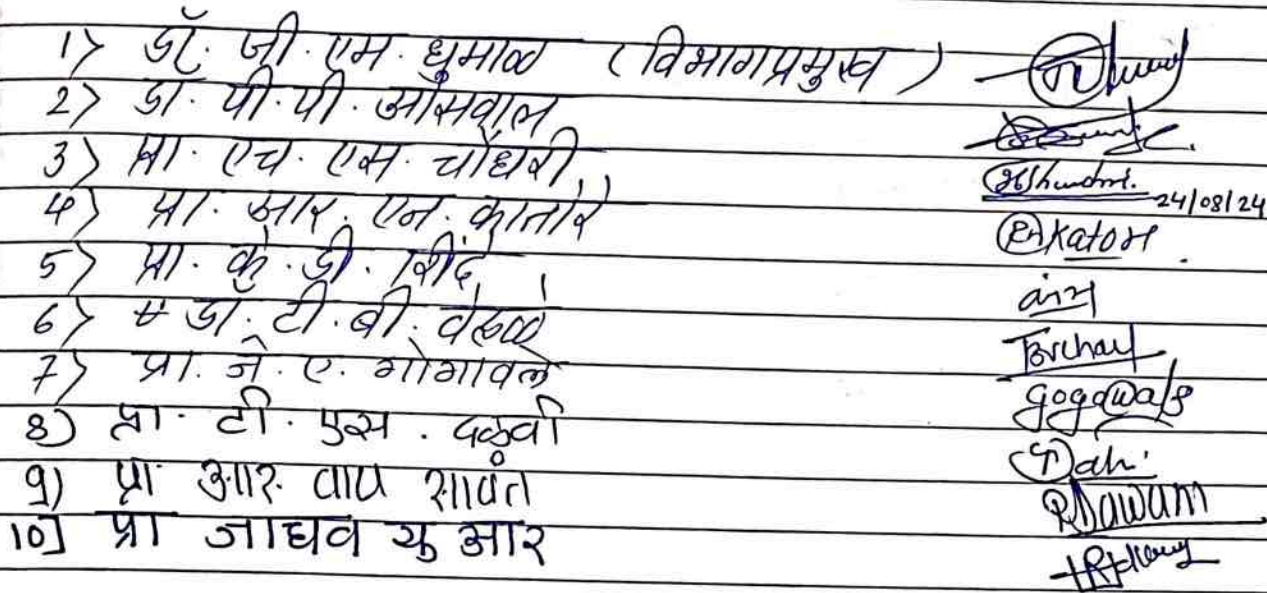 1) डॉ. जी. एम. धुमाळ (विभागप्रमुख)
2) डॉ. पी. पी. ओसवाल
3) प्रा. एच. एस. चौधरी
24/08/24
4) प्रा. आर. एन. कातोरे
Rnkatore
5) प्रा. के. डी. शिंदे
6) डॉ. टी. बी. वेहळे
7) प्रा. जे. ए. गोगावले
gogawale
8) प्रा. टी. एस. दळवी
9) प्रा आर. वाय सावंत
RSawant
10] प्रा जाधव यु आर